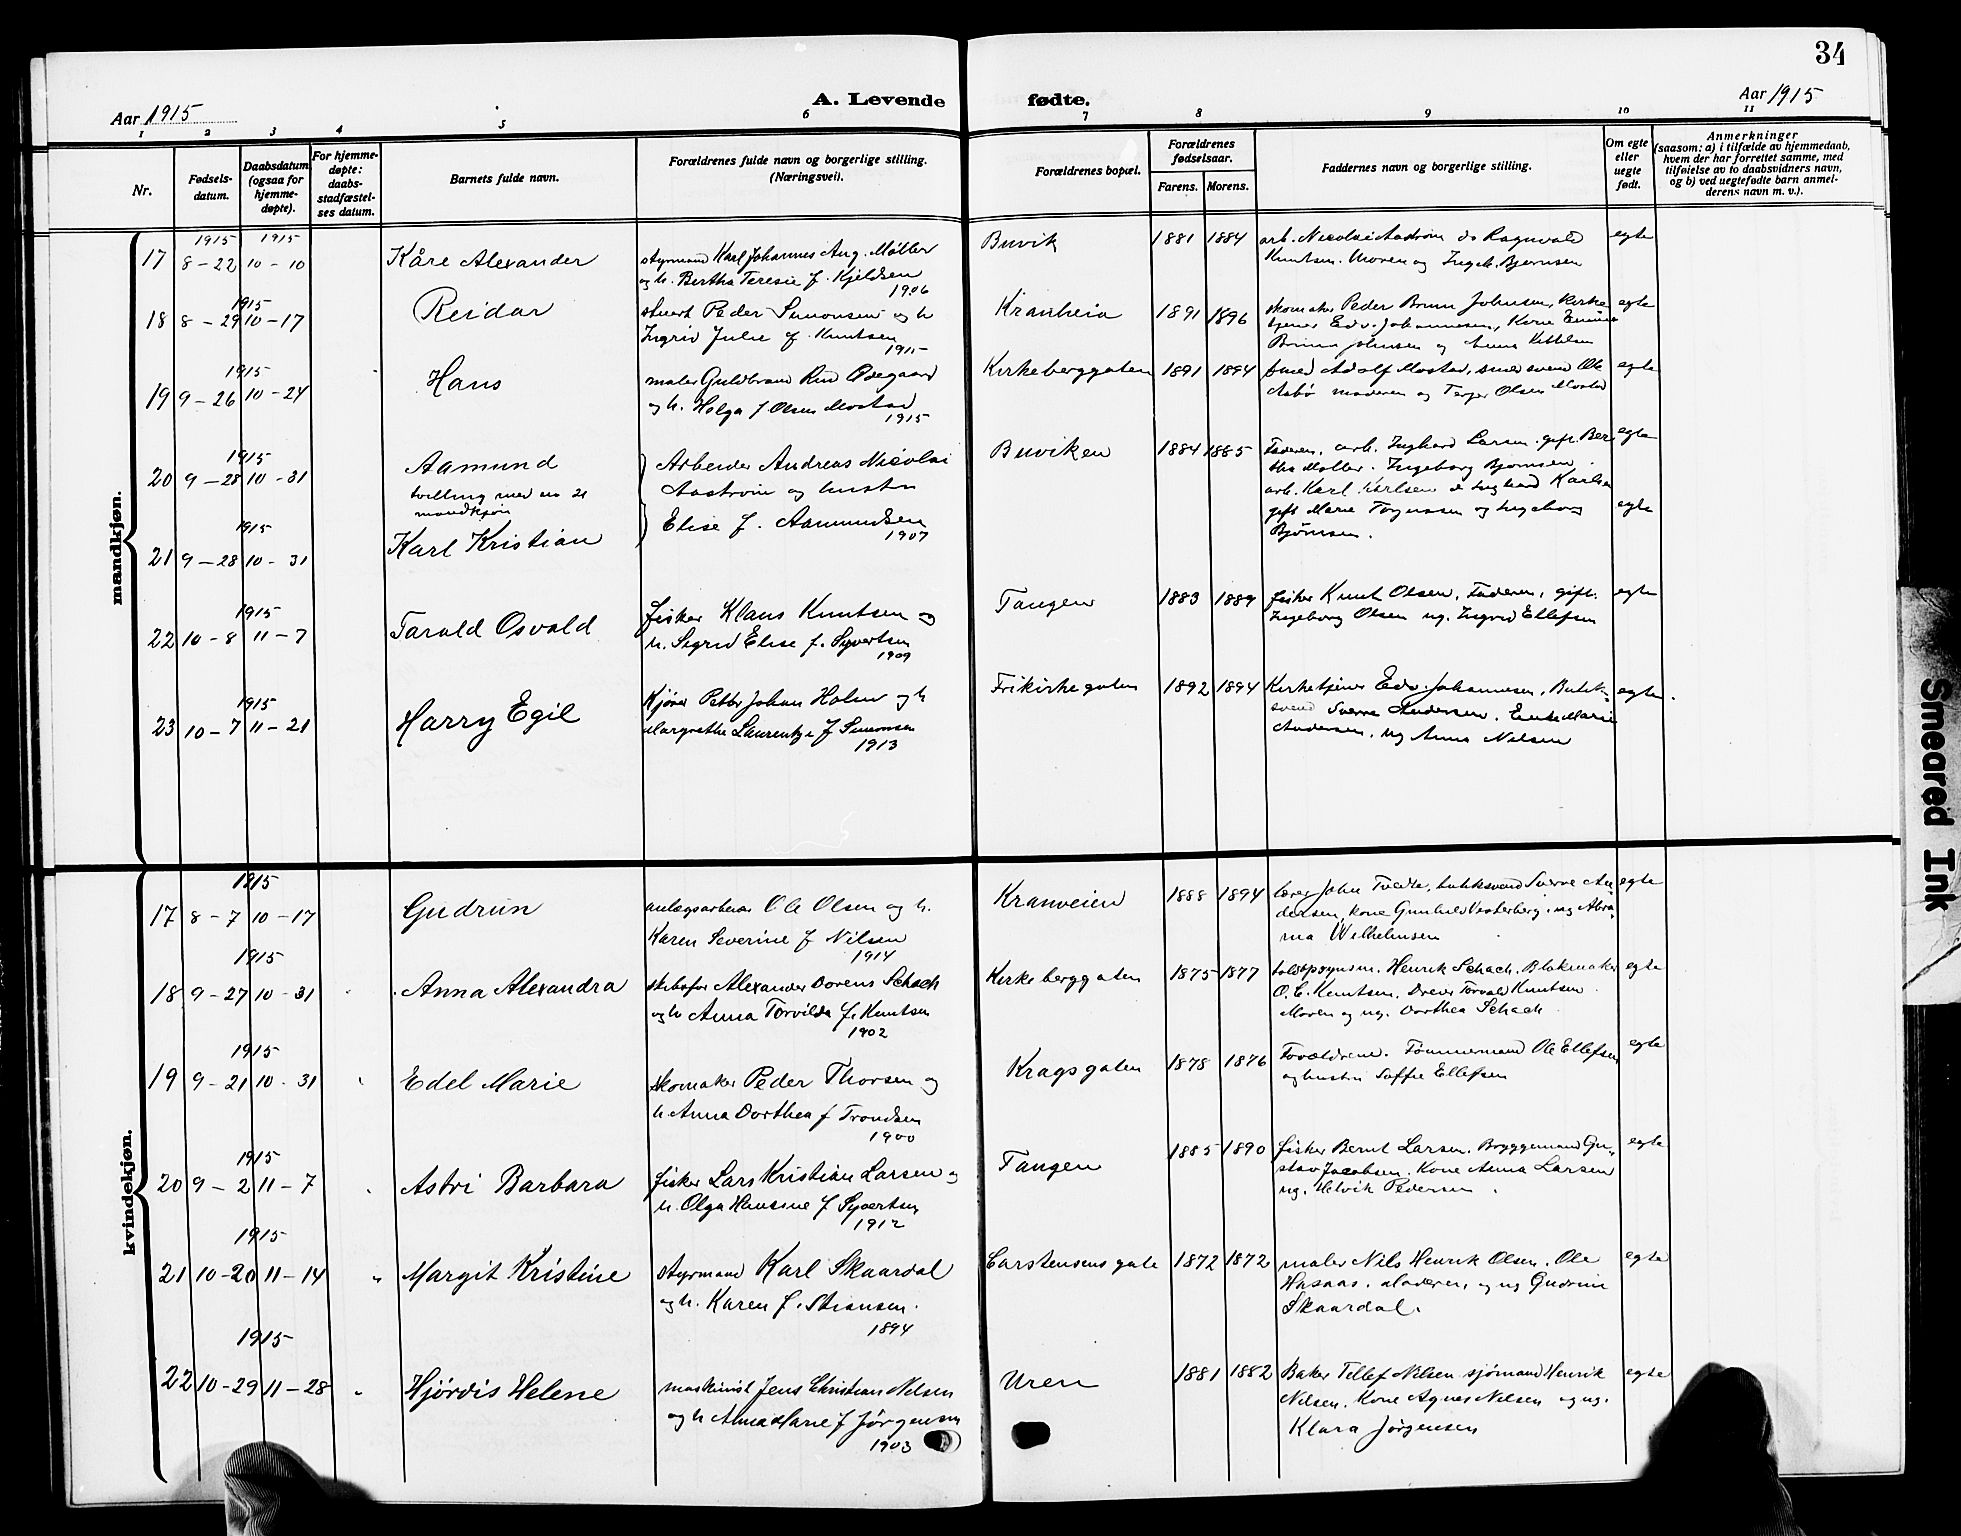 34
A. Levende fødte.
Aar 1915
Aar 1915
1 2 3 4 5 6 7 8 9 10 11
Nr.
Fødsels-
datum.
Daabsdatum
(ogsaa for
hjemme-
døpte).
For hjemme-
døpte:
daabs-
stadfæstel-
ses datum.
Barnets fulde navn.
Forældrenes fulde navn og borgerlige stilling.
(Næringsvei).
Forældrenes bopæl.
Forældrenes
fødselsaar.
Farens. Morens.
Faddernes navn og borgerlige stilling.
Om egte
eller
uegte
født.
Anmerkninger
(saasom: a) i tilfælde av hjemmedaab,
hvem der har forrettet samme, med
tilføielse av to daabsvidners navn,
og b) ved uegtefødte barn anmel-
derens navn m. v.).
mandkjøn.
1915 1915
17 8-22 10-10 Kåre Alexander
styrmand Karl Johannes Aug. Møller
og h. Bertha Teresie f. Kjeldsen
1906
Buvik 1881 1884
arb. Nicolai Aastrøm do Ragnvald
Knutsen. Moren og Ingeb. Bjørnsen
egte
1915
18 8-29 10-17 Reidar
stuert Peder Simonsen og h
Ingrid Julie f. Knutsen
1915
Kranheia 1891 1896
skomaker Peder Brun Johnsen, kirke
tjener Edv. Johannesen, Kone Emma
Bruun Johnsen og Anna Kittelsen
egte
1915
19 9-26 10-24 Hans
maler Guldbrand Rud Ødegaard
og h. Helga f Olsen Mostad
1915
Kirkeberggaten 1891 1894
smed Adolf Mostad, smedsvend Ole
Aabø moderen og Terje Olsen Mostad
egte
1915
20 9-28 10-31 Aamund
tvilling med no 21
mandkjøn
Arbeider Andreas Nicolai
Aastrøm og hustru
Elise f. Aamundsen
1907
Buviken 1884 1885
Faderen, arb. Inghard Larsen. gift Ber
tha Møller. Ingeborg Bjørnsen
arb. Karl Karlsen do Inghard Karlsen
gift Marie Torgersen og Ingeborg
Bjørnsen.
egte
egte
1915
21 9-28 10-31 Karl Kristian
1915
22 10-8 11-7 Tarald Osvald
fisker Klaus Knutsen og
h. Sigrid Elise f. Syvertsen
1909
Tangen 1883 1889
fisker Knut Olsen, Faderen, gift.
Ingeborg Olsen ug. Ingrid Ellefsen
egte
1915
23 10-7 11-21 Harry Egil
Kjører Petter Johan Holm og h
Margrethe Laurentze f Simonsen
1913
Frikirkegaten 1892 1894
Kirketjener Edv. Johannesen, Butik-
svend Sverre Andersen. Enke Marie
Andersen, ug Anna Nelsen
egte.
kvindekjøn.
1915
17 8-7 10-17 Gudrun
anlægsarbeider Ole Olsen og h.
Karen Severine f Nilsen
1914
Kranveien 1888 1894
lærer John Tvedte, butiksvend Sverre An
dersen, kone Gunhild Vesterberg. ug Abra-
ma Wilhelmsen
egte
1915
18 9-27 10-31 Anna Alexandra
skibsfør Alexander Dorens Schach
og h Anna Torvilda f. Knutsen
1902
Kirkeberggaten 1875 1877
toldopsynsm. Henrik Schach. Blokmaker
O. C. Knutsen. Dreier Torvald Knutsen
Moren og ug. Dorthea Schach
egte
1915
19 9-21 10-31 Edel Marie
skomaker Peder Thorsen og
h Anna Dorthea f Trondsen
1900
Kragsgaten 1878 1876
Forældrene. Tømmermand Ole Ellefsen
og hustru Soffie Ellefsen
egte
1915
20 9-2 11-7 Astri Barbara
fisker Lars Kristian Larsen og
h. Olga Hansine f Syvertsen
1912
Tangen 1885 1890
fisker Bernt Larsen. Bryggemand Gu-
stav Jacobsen. Kone Anna Larsen
ug. Helvik Pedersen.
egte
1915
21 10-20 11-14 " Margit Kristine
styrmand Karl Skaardal
og h. Karen f. Stiansen.
1894
Carstensensgate 1872 1872
maler Nils Henrik Olsen. Ole
Hasaas. Moderen, og ug Gudrun
Skaardal.
egte
1915
22 10-29 11-28 " Hjørdis Helene
maskinist Jens Christian Nelsen
og h Alma Marie f Jørgensen
1903
Uren 1881 1882
Baker Tellef Nilsen sjømand Henrik
Nelsen. Kone Agnes Nelsen og ug.
Klara Jørgensen
egte
Smeared Ink